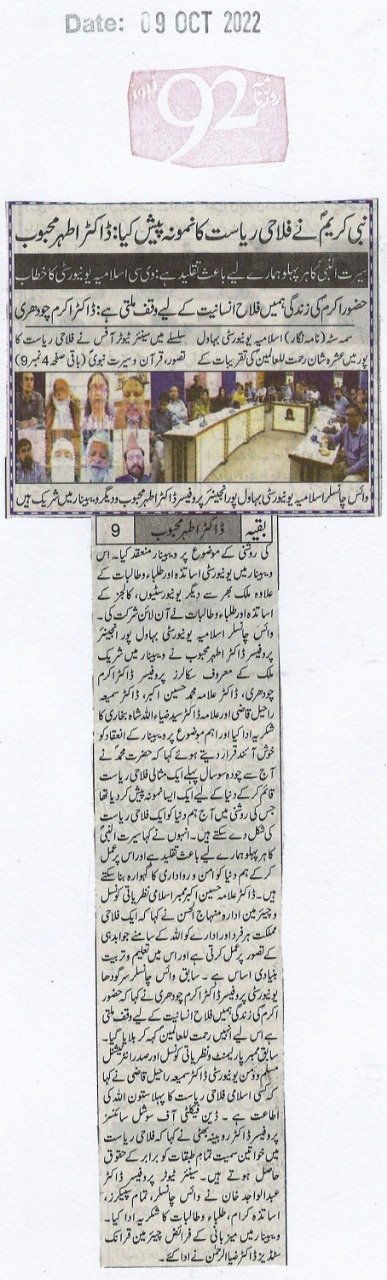 Date: 09 OCT 2022
روزنامہ 92 نیوز
نبی کریمؐ نے فلاحی ریاست کا نمونہ پیش کیا: ڈاکٹر اطہر محبوب
سیرت النبیؐ کا ہر پہلو ہمارے لیے باعث تقلید ہے: وی سی اسلامیہ یونیورسٹی کا خطاب
حضور اکرمؐ کی زندگی ہمیں فلاح انسانیت کے لیے وقف ملتی ہے: ڈاکٹر اکرم چودھری
سمہ سٹہ (نامہ نگار) اسلامیہ یونیورسٹی بہاول
پور میں عشرہ شان رحمت للعالمینؐ کی تقریبات کے
سلسلے میں سینئر ٹیوٹر آفس نے فلاحی ریاست کا
تصور، قرآن و سیرت نبویؐ (باقی صفحہ 4 نمبر 9)
وائس چانسلر اسلامیہ یونیورسٹی بہاول پور انجینئر پروفیسر ڈاکٹر اطہر محبوب و دیگر ویبینار میں شریک ہیں
بقیہ ڈاکٹر اطہر محبوب 9
کی روشنی کے موضوع پر ویبینار منعقد کیا۔ اس
ویبینار میں یونیورسٹی اساتذہ اور طلباء و طالبات کے
علاوہ ملک بھر سے دیگر یونیورسٹیوں، کالجز کے
اساتذہ اور طلباء و طالبات نے آن لائن شرکت کی۔
وائس چانسلر اسلامیہ یونیورسٹی بہاول پور انجینئر
پروفیسر ڈاکٹر اطہر محبوب نے ویبینار میں شریک
ملک کے معروف سکالرز پروفیسر ڈاکٹر اکرم
چودھری، ڈاکٹر علامہ محمد حسین اکبر، ڈاکٹر سمیعہ
راحیل قاضی اور علامہ ڈاکٹر سید ضیاء اللہ شاہ بخاری کا
شکریہ ادا کیا اور اہم موضوع پر ویبینار کے انعقاد کو
خوش آئند قرار دیتے ہوئے کہا کہ حضرت محمدؐ نے
آج سے چودہ سو سال پہلے ایک مثالی فلاحی ریاست
قائم کر کے دنیا کے لیے ایک ایسا نمونہ پیش کر دیا تھا
جس کی روشنی میں آج ہم دنیا کو ایک فلاحی ریاست
کی شکل دے سکتے ہیں۔ انہوں نے کہا سیرت النبیؐ
کا ہر پہلو ہمارے لیے باعث تقلید ہے اور اس پر عمل
کر کے ہم دنیا کو امن و رواداری کا گہوارہ بنا سکتے
ہیں۔ ڈاکٹر علامہ حسین اکبر ممبر اسلامی نظریاتی کونسل
و چیئرمین ادارہ منہاج الحسن نے کہا کہ ایک فلاحی
مملکت ہر فرد اور ادارے کو اللہ کے سامنے جوابدہی
کے تصور پر عمل کرتی ہے اور اس میں تعلیم و تربیت
بنیادی اساس ہے۔ سابق وائس چانسلر سرگودھا
یونیورسٹی پروفیسر ڈاکٹر اکرم چودھری نے کہا کہ حضور
اکرمؐ کی زندگی ہمیں فلاح انسانیت کے لیے وقف ملتی
ہے اس لیے انہیں رحمت للعالمینؐ کہہ کر بلایا گیا۔
سابق ممبر پارلیمنٹ و نظریاتی کونسل اور صدر انٹرنیشنل
مسلم وومن یونیورسٹی ڈاکٹر سمیعہ راحیل قاضی نے کہا
کہ کسی اسلامی فلاحی ریاست کا پہلا ستون اللہ کی
اطاعت ہے۔ ڈین فیکلٹی آف سوشل سائنسز
پروفیسر ڈاکٹر روبینہ بھٹی نے کہا کہ فلاحی ریاست
میں خواتین سمیت تمام طبقات کو برابر کے حقوق
حاصل ہوتے ہیں۔ سینئر ٹیوٹر پروفیسر ڈاکٹر
عبدالواجد خان نے وائس چانسلر، تمام سپیکرز،
اساتذہ کرام، طلباء و طالبات کا شکریہ ادا کیا۔
ویبینار میں میزبانی کے فرائض چیئرمین قرآنک
سٹڈیز ڈاکٹر ضیاالرحمٰن نے ادا کئے۔